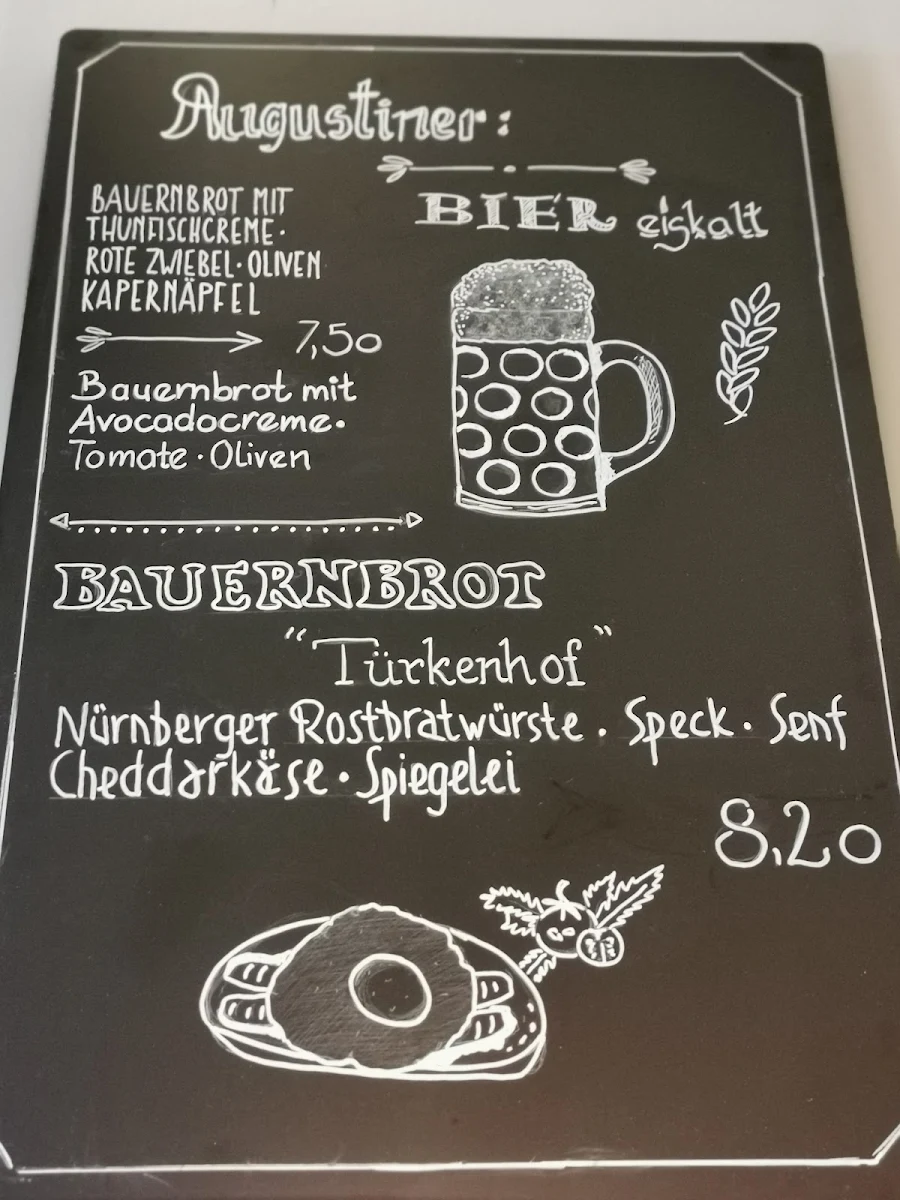 Augustiner:
BIER eiskalt
BAUERNBROT MIT
THUNFISCHCREME·
ROTE ZWIEBEL·OLIVEN
KAPERNÄPFEL
7,50
Bauernbrot mit
Avocadocreme·
Tomate·Oliven
BAUERNBROT
"Türkenhof"
Nürnberger Rostbratwürste · Speck · Senf
Cheddarkäse · Spiegelei
8,20